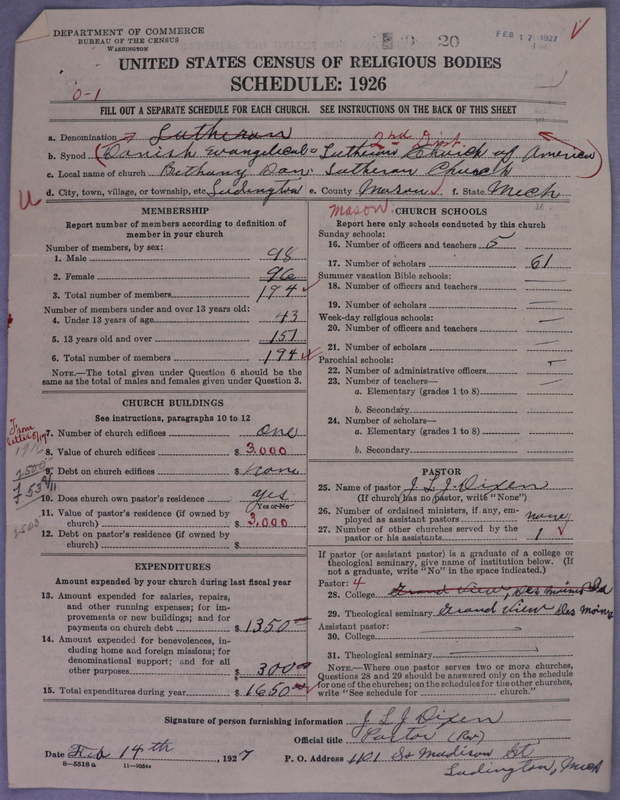 DEPARTMENT OF COMMERCE
BUREAU OF THE CENSUS
WASHINGTON
20
FEB 17 1927
UNITED STATES CENSUS OF RELIGIOUS BODIES
SCHEDULE: 1926
0-1
FILL OUT A SEPARATE SCHEDULE FOR EACH CHURCH. SEE INSTRUCTIONS ON THE BACK OF THIS SHEET
a. Denomination Lutheran
2nd Dist.
b. Synod (Danish Evangelical Lutheran Church of America)
c. Local name of church Bethany Dan. Lutheran Church
d. City, town, village, or township, etc. Ludington e. County Mason f. State Mich
Mason
MEMBERSHIP
Report number of members according to definition of member in your church
Number of members, by sex:
1. Male 98
2. Female 96
3. Total number of members 194
Number of members under and over 13 years old:
4. Under 13 years of age 43
5. 13 years old and over 151
6. Total number of members 194
NOTE.—The total given under Question 6 should be the same as the total of males and females given under Question 3.
CHURCH BUILDINGS
See instructions, paragraphs 10 to 12
From letter
7. Number of church edifices one
1916
8. Value of church edifices $ 3,000
2500
9. Debt on church edifices $ none
10. Does church own pastor's residence yes
Yes or No
11. Value of pastor's residence (if owned by church) $ 3,000
2500
12. Debt on pastor's residence (if owned by church) $
EXPENDITURES
Amount expended by your church during last fiscal year
13. Amount expended for salaries, repairs, and other running expenses; for improvements or new buildings; and for payments on church debt $ 1350
14. Amount expended for benevolences, including home and foreign missions; for denominational support; and for all other purposes $ 300
15. Total expenditures during year $ 1650
CHURCH SCHOOLS
Report here only schools conducted by this church
Sunday schools:
16. Number of officers and teachers 5
17. Number of scholars 61
Summer vacation Bible schools:
18. Number of officers and teachers
19. Number of scholars
Week-day religious schools:
20. Number of officers and teachers
21. Number of scholars
Parochial schools:
22. Number of administrative officers
23. Number of teachers—
a. Elementary (grades 1 to 8)
b. Secondary
24. Number of scholars—
a. Elementary (grades 1 to 8)
b. Secondary
PASTOR
25. Name of pastor J. L. J. Dixen
(If church has no pastor, write "None")
26. Number of ordained ministers, if any, employed as assistant pastors none
27. Number of other churches served by the pastor or his assistants 1
If pastor (or assistant pastor) is a graduate of a college or theological seminary, give name of institution below. (If not a graduate, write "No" in the space indicated.)
Pastor: 4
28. College Grand View, Des Moines Ia
29. Theological seminary Grand View Des Moines
Assistant pastor:
30. College
31. Theological seminary
NOTE.—Where one pastor serves two or more churches, Questions 28 and 29 should be answered only on the schedule for one of the churches; on the schedules for the other churches, write "See schedule for ______ church."
Signature of person furnishing information J L J Dixen
Official title Pastor (Rev)
Date Feb 14th, 1927 P. O. Address 1101 So Madison St
Ludington, Mich
8—5518 a 11—9054a